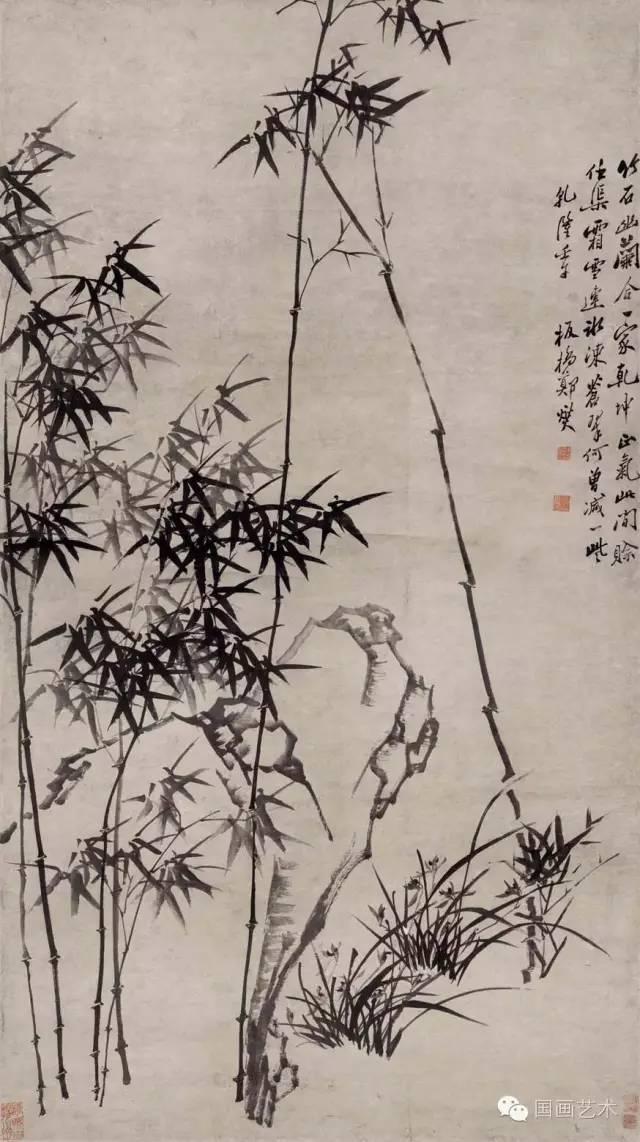 竹石幽蘭合一家乾坤正氣此間賒
任渠霜雪連冰凍蒼翠何曾減一些
乾隆壬午 板橋鄭燮
国画艺术